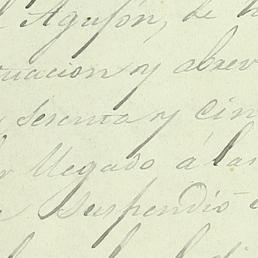 Agustín, de
tuacion y abrev
sesenta y cin
r llegado á las
e suspendió